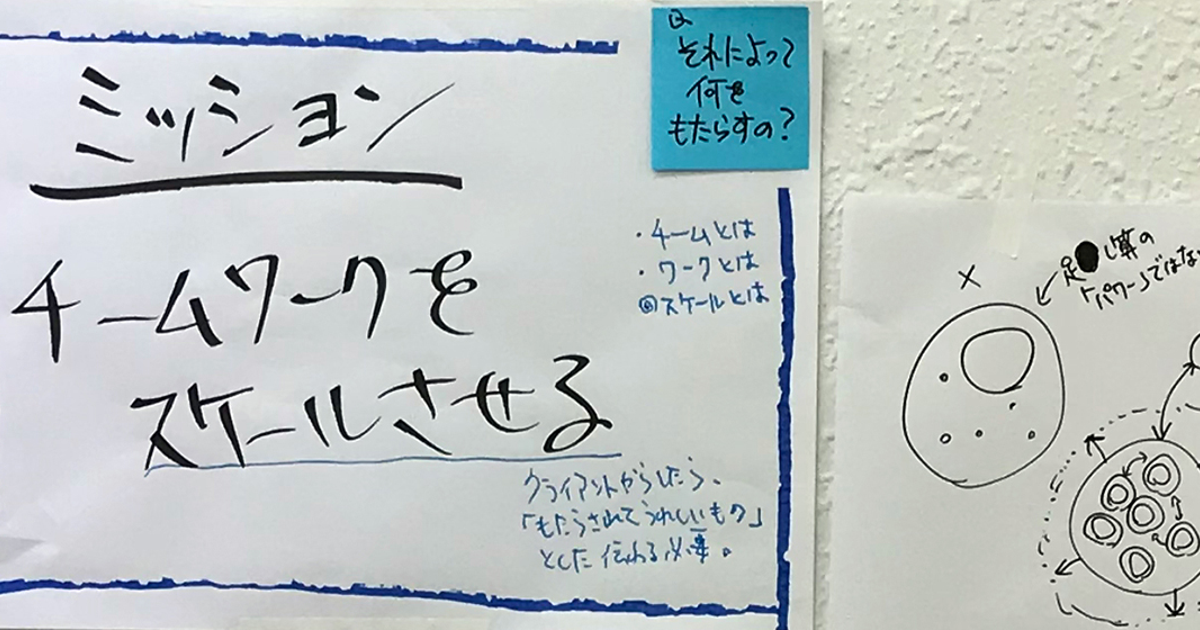 ミッション
チームワークを
スケールさせる
Q
それによって
何を
もたらすの?
・チームとは
・ワークとは
◎スケールとは
クライアントからしたら、
「もたらされてうれしいもの」
とした伝わる必要。
×
足し算の
「パワー」ではな